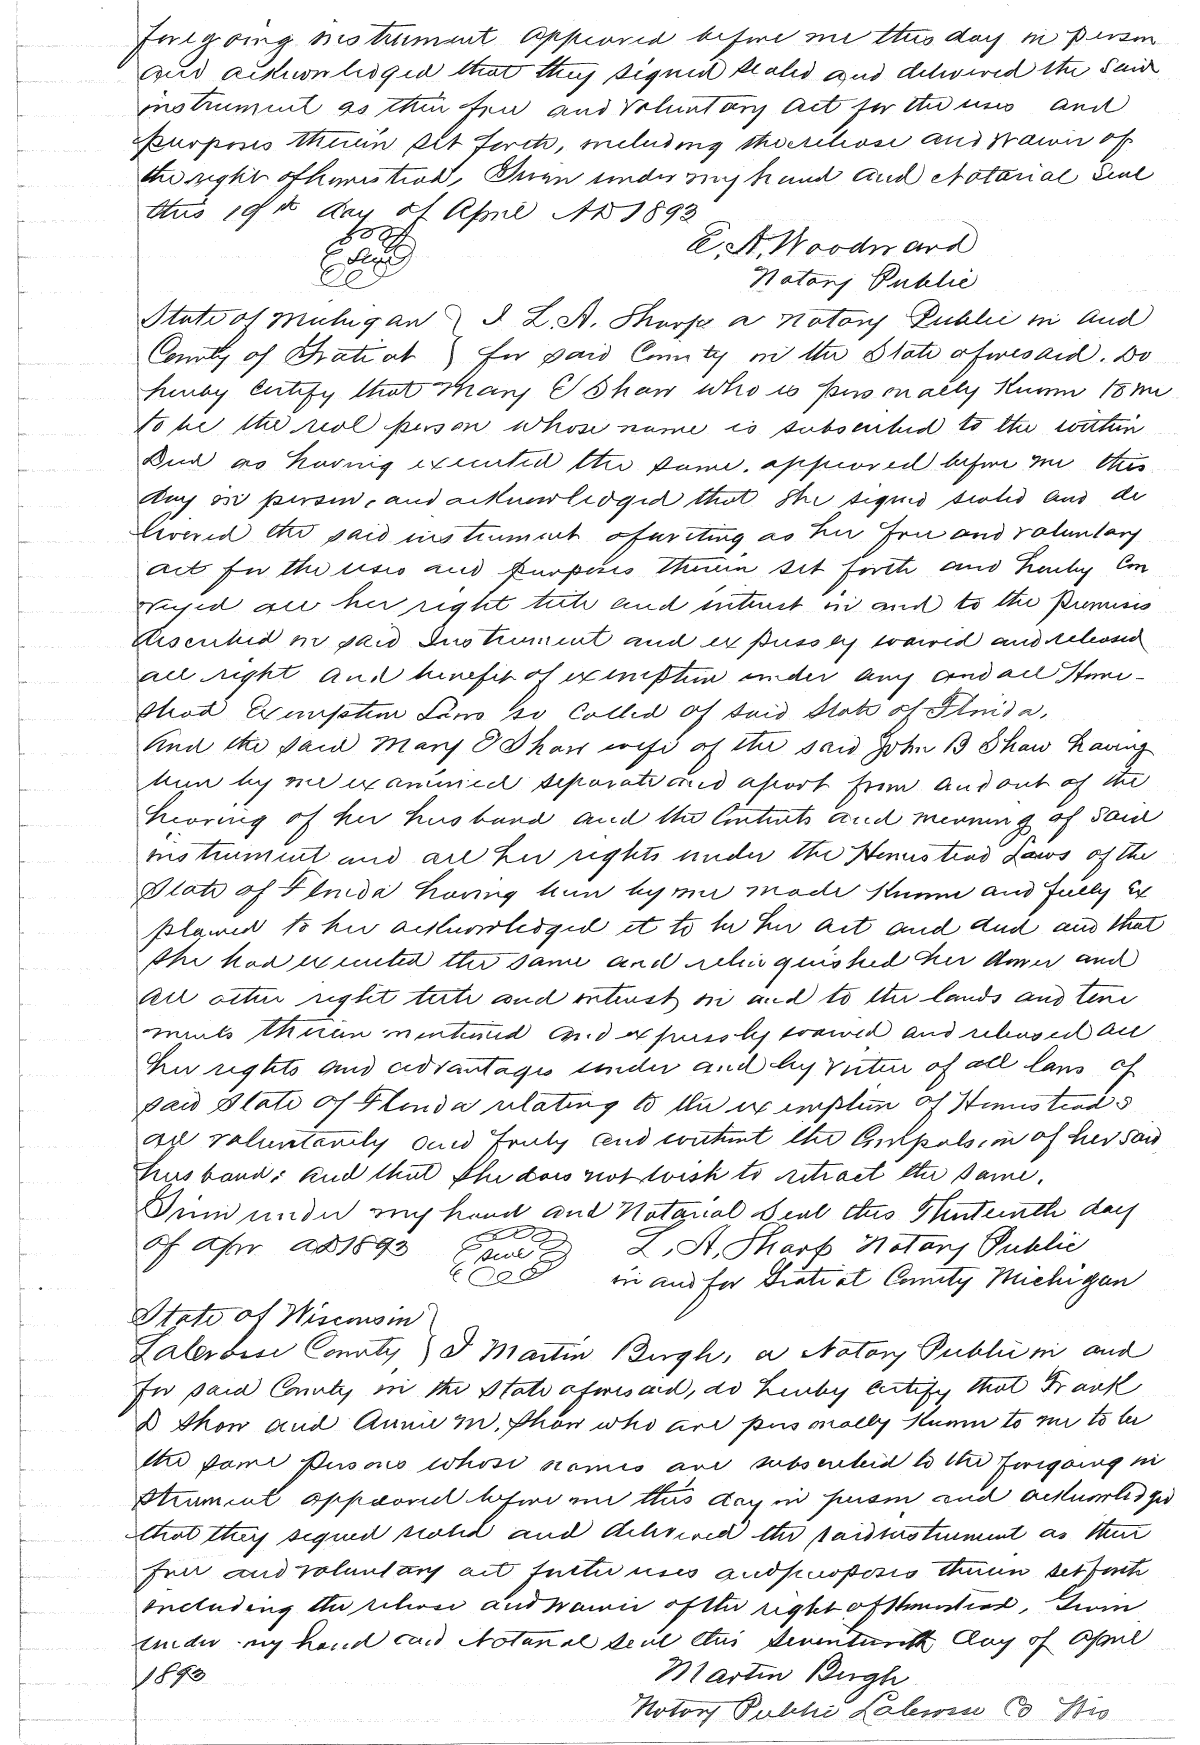 foregoing instrument appeared before me this day in person
and acknowledged that they signed sealed and delivered the said
instrument as their free and voluntary act for the uses and
purposes therein set forth, including the release and waiver of
the right of homestead, Given under my hand and Notarial Seal
this 19th day of April AD 1893
E. A. Woodward
Seal
Notary Public
State of Michigan } I L. A. Sharp a Notary Public in and
County of Gratiot } for said County in the State aforesaid. Do
hereby certify that Mary E Shaw who is personally Known to me
to be the real person whose name is subscribed to the within
Deed as having executed the same. appeared before me this
day in person, and acknowledged that she signed sealed and de
livered the said instrument of writing as her free and voluntary
act for the uses and purposes therein set forth and hereby Con
veyed all her right title and interest in and to the Premises
described in said Instrument and expressly waived and released
all right and benefit of exemption under any and all Home-
stead Exemption Laws so called of said State of Florida.
And the said Mary E Shaw wife of the said John B Shaw having
been by me examined separate and apart from and out of the
hearing of her husband and the Contents and meaning of said
instrument and all her rights under the Homestead Laws of the
State of Florida having been by me made Known and fully Ex
plained to her acknowledged it to be her act and deed and that
she had executed the same and relinquished her dower and
all other right title and interest in and to the lands and tene
ments therein mentioned and expressly waived and released all
her rights and advantages under and by virtue of all laws of
said State of Florida relating to the exemption of Homesteads
all voluntarily and freely and without the Compulsion of her said
husband; and that she does not wish to retract the same.
Given under my hand and Notarial Seal this Thirteenth day
of Apr AD 1893 Seal L. A. Sharp Notary Public
in and for Gratiot County Michigan
State of Wisconsin }
LaCrosse County } I Martin Bergh, a Notary Public in and
for said County in the State aforesaid, do hereby certify that Frank
D Shaw and Annie M. Shaw who are personally Known to me to be
the same persons whose names are subscribed to the foregoing in
strument appeared before me this day in person and acknowledged
that they signed sealed and delivered the said instrument as their
free and voluntary act for the uses and purposes therein set forth
including the release and waiver of the right of Homestead, Given
under my hand and Notarial Seal this Seventeenth day of April
1893 Martin Bergh
Notary Public LaCrosse Co Wis